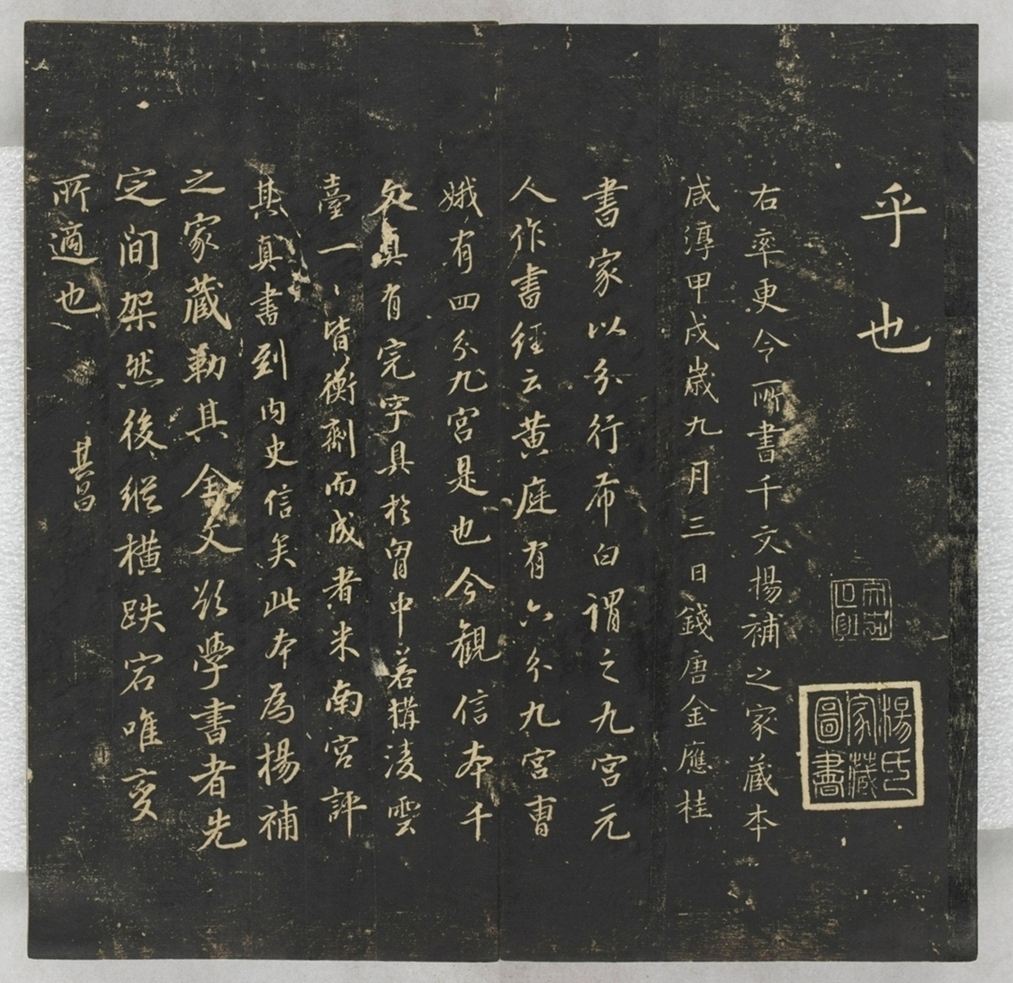 乎也
楊氏
家藏
圖書
右率更令所書千文楊補之家藏本
咸淳甲戌歲九月三日錢唐金應桂
書家以分行布白謂之九宮元
人作書經云黃庭有六分九宮曹
娥有四分九宮是也今觀信本千
文真有完字具於胷中若構凌雲
臺一ヽ皆衡劑而成者米南宮評
其真書到內史信矣此本為楊補
之家藏勒其全文欲學書者先
定間架然後縱橫跌宕唯變
所適也
其昌